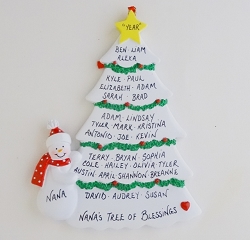 "YEAR"
BEN · LIAM
ALEXA
KYLE · PAUL
ELIZABETH · ADAM
SARAH · BRAD
ADAM · LINDSAY
TYLER · MARK · KRISTINA
ANTONIO · JOE · KEVIN
TERRY · BAYAN · SOPHIA
COLE · HAILEY · OLIVIA · TYLER
AUSTIN APRIL · SHANNON BREANNE
DAVID · AUDREY · SUSAN
NANA
NANA'S TREE OF BLESSINGS